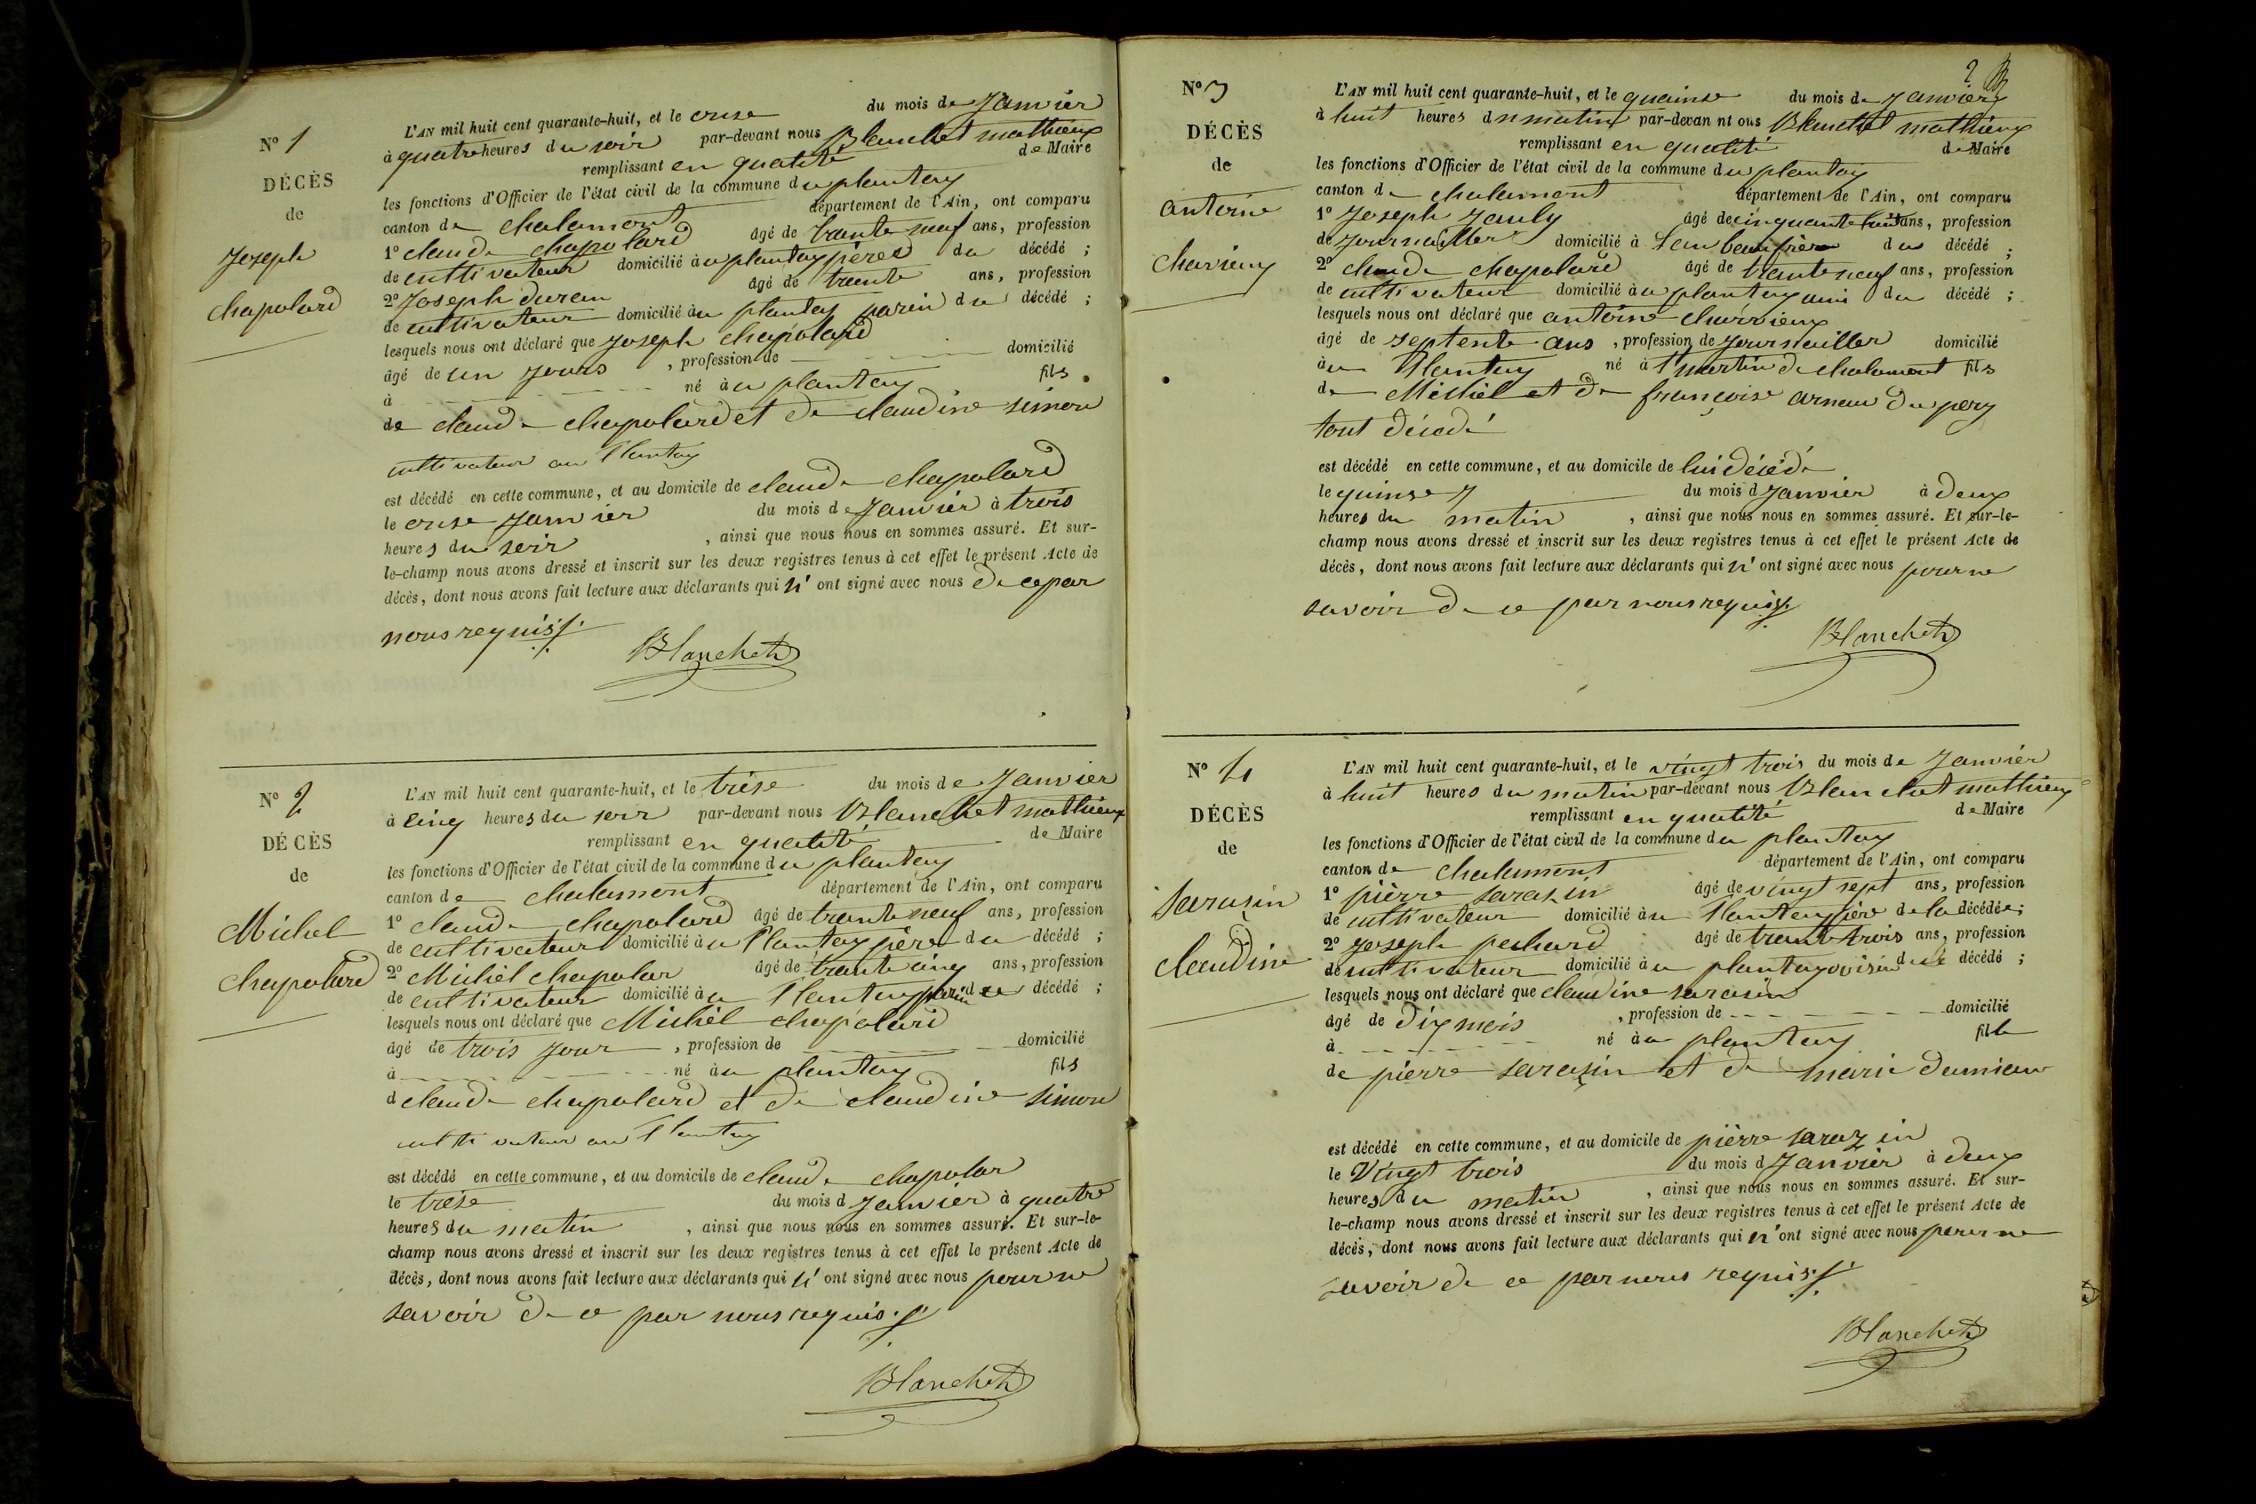 N° 1
DÉCÈS
de
Joseph
chapolard
L'AN mil huit cent quarante-huit, et le onse du mois de Janvier
à quatre heures du soir par-devant nous Blanchet mathieux
remplissant en qualité de Maire
les fonctions d'Officier de l'état civil de la commune du plantay
canton de chalamont département de l'Ain, ont comparu
1° claude chapolard âgé de trante neuf ans, profession
de cultivateur domicilié au plantay père du décédé ;
2° Joseph duran âgé de trante ans, profession
de cultivateur domicilié au plantay parin du décédé ;
lesquels nous ont déclaré que Joseph chapolard
âgé de un jours , profession de domicilié
à né au plantay fils
de claude chapolard et de claudine simon
cultivateur au Plantay
est décédé en cette commune, et au domicile de claude chapolard
le onse Janvier du mois de Janvier à trois
heures du soir , ainsi que nous nous en sommes assuré. Et sur-
le-champ nous avons dressé et inscrit sur les deux registres tenus à cet effet le présent Acte de
décès, dont nous avons fait lecture aux déclarants qui n' ont signé avec nous de ce par
nous requis
Blanchet
N° 2
DÉCÈS
de
Michel
chapolard
L'AN mil huit cent quarante-huit, et le trèse du mois de Janvier
à cinq heures du soir par-devant nous Blanchet mathieux
remplissant en qualité de Maire
les fonctions d'Officier de l'état civil de la commune du plantay
canton de chalamont département de l'Ain, ont comparu
1° claude chapolard âgé de trante neuf ans, profession
de cultivateur domicilié au Plantay père du décédé ;
2° Michel chapolar âgé de trante cinq ans, profession
de cultivateur domicilié au Plantay parin du décédé ;
lesquels nous ont déclaré que Michel chapolard
âgé de trois jour , profession de domicilié
à né au plantay fils
d claude chapolard et de claudine simon
cultivateur au Plantay
est décédé en cette commune, et au domicile de claude chapolar
le trèse du mois d Janvier à quatre
heures du matin , ainsi que nous nous en sommes assuré. Et sur-le-
champ nous avons dressé et inscrit sur les deux registres tenus à cet effet le présent Acte de
décès, dont nous avons fait lecture aux déclarants qui n' ont signé avec nous pour ne
savoir de ce par nous requis
Blanchet
2
N° 3
DÉCÈS
de
antoine
charieux
L'AN mil huit cent quarante-huit, et le quainse du mois de Janvier
à huit heures du matin par-devan nt ous Blanchet mathieux
remplissant en qualité de Maire
les fonctions d'Officier de l'état civil de la commune du plantay
canton de chalamont département de l'Ain, ont comparu
1° Joseph Janly âgé de cinquante huit ans, profession
de journailler domicilié à beaufrère du décédé ;
2° claude chapolard âgé de trante neuf ans, profession
de cultivateur domicilié au plantay ami du décédé ;
lesquels nous ont déclaré que antoine charrieux
âgé de septente ans , profession de journailler domicilié
au Plantay né à St martin de chalamont fils
de Michel et de françoise arnau du pery
tout décédé
est décédé en cette commune, et au domicile de lui décédé
le quinse du mois d Janvier à deux
heures du matin , ainsi que nous nous en sommes assuré. Et sur-le-
champ nous avons dressé et inscrit sur les deux registres tenus à cet effet le présent Acte de
décès, dont nous avons fait lecture aux déclarants qui n' ont signé avec nous pour ne
savoir de ce par nous requis
Blanchet
N° 4
DÉCÈS
de
sarasin
claudine
L'AN mil huit cent quarante-huit, et le vingt trois du mois de Janvier
à huit heures du matin par-devant nous Blanchet mathieux
remplissant en qualité de Maire
les fonctions d'Officier de l'état civil de la commune du plantay
canton de chalamont département de l'Ain, ont comparu
1° pièrre sarazin âgé de vingt sept ans, profession
de cultivateur domicilié au Plantay père de la décédée ;
2° Joseph pechard âgé de trante trois ans, profession
de cultivateur domicilié au plantay voisin décédé ;
lesquels nous ont déclaré que claudine sarasin
âgé de dix mois , profession de domicilié
à né au plantay fille
de pierre sarasin et de marie damian
est décédé en cette commune, et au domicile de pièrre sarazin
le vingt trois du mois d Janvier à deux
heures du matin , ainsi que nous nous en sommes assuré. Et sur-
le-champ nous avons dressé et inscrit sur les deux registres tenus à cet effet le présent Acte de
décès, dont nous avons fait lecture aux déclarants qui n' ont signé avec nous pour ne
savoir de ce par nous requis
Blanchet